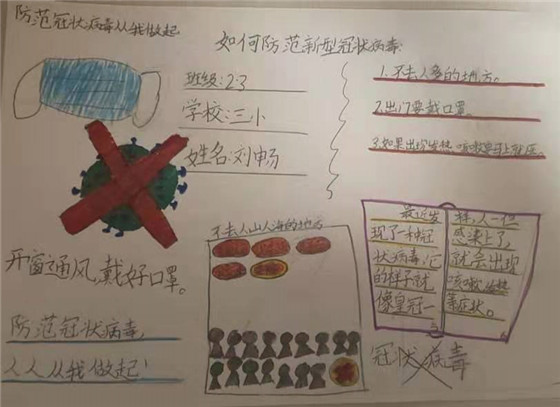 防范冠状病毒从我做起
如何防范新型冠状病毒
班级:2.3
学校:三小
姓名:刘畅
1.不去人多的地方。
2.出门要戴口罩。
3.如果出现发热、咳嗽要马上就医。
不去人山人海的地方
开窗通风,戴好口罩。
防范冠状病毒,
人人从我做起!
最近发
现了一种冠
状病毒,它
的样子就
像皇冠一
样,人一但
感染上了,
就会出现
咳嗽、发热
等症状。
冠状病毒